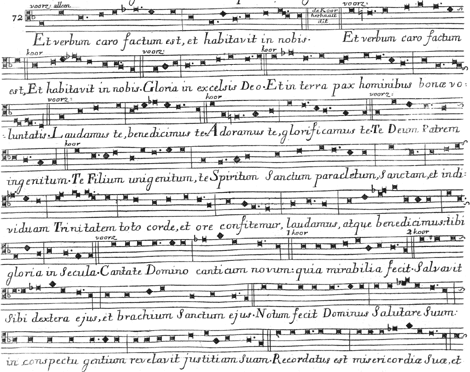 voorz: allen voorz:
72 de koor herhaalt dit
Et verbum caro factum est, et habitavit in nobis. Et verbum caro factum
koor voorz: koor
est, Et habitavit in nobis. Gloria in excelsis Deo. Et in terra pax hominibus bonæ vo:
voorz: koor voorz:
luntatis. Laudamus te, benedicimus te. Adoramus te, glorificamus te. Te Deum Patrem
koor
ingenitum. Te Filium unigenitum, te Spiritum Sanctum paracletum, Sanctam, et indi:
viduam Trinitatem toto corde, et ore confitemur, laudamus, atque benedicimus: tibi
voorz: 1 koor 2 koor
gloria in Secula. Cantate Domino canticum novum: quia mirabilia fecit. Salvavit
Sibi dextera ejus, et brachium Sanctum ejus. Notum fecit Dominus Salutare Suum:
in conspectu gentium revelavit justitiam Suam. Recordatus est misericordiæ Suæ, et